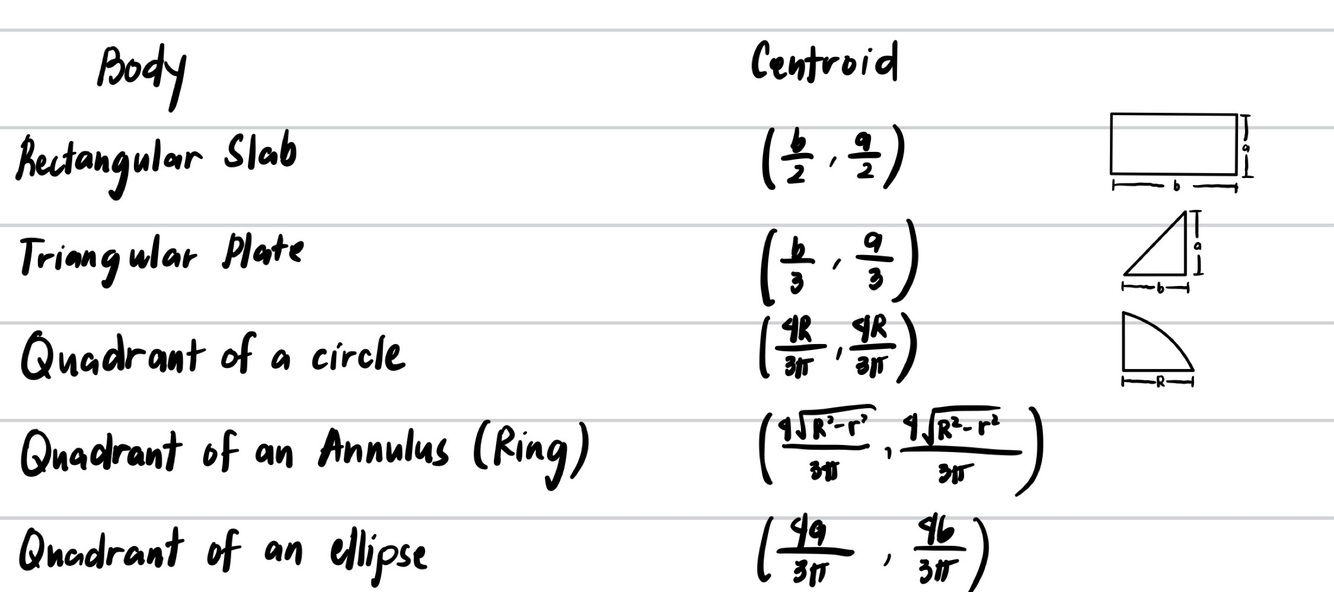 Body Centroid
Rectangular Slab (b/2, a/2) a
b
Triangular Plate (b/3, a/3) a
b
Quadrant of a circle (4R/3π, 4R/3π)
R
Quadrant of an Annulus (Ring) (4√(R²-r²)/3π, 4√(R²-r²)/3π)
Quadrant of an ellipse (4a/3π, 4b/3π)